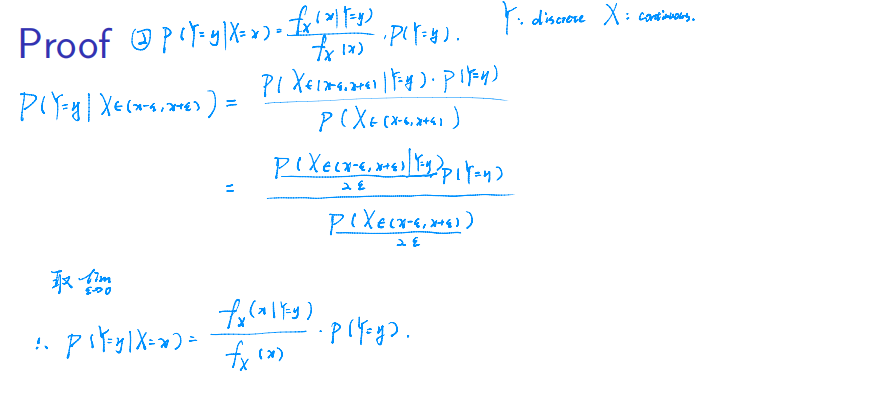 Proof ② P(Y=y|X=x) = \frac{f_X(x|Y=y)}{f_X(x)} · P(Y=y). Y: discrete X: continuous.
P(Y=y|X∈(x-ε,x+ε)) = \frac{P(X∈(x-ε,x+ε)|Y=y)·P(Y=y)}{P(X∈(x-ε,x+ε))}
= \frac{\frac{P(X∈(x-ε,x+ε)|Y=y)}{2ε}P(Y=y)}{\frac{P(X∈(x-ε,x+ε))}{2ε}}
取 \lim_{ε→0}
∴ P(Y=y|X=x) = \frac{f_X(x|Y=y)}{f_X(x)} · P(Y=y).